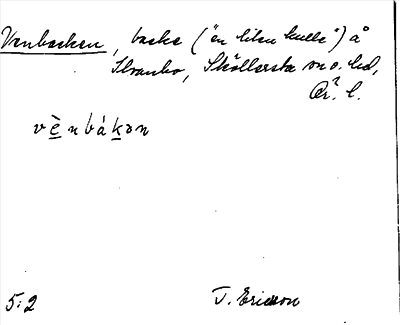 Venbacken, backe ("en liten kulle") å
Stranbo, Sköllersta sn o. hd,
Ör. l.
vè̠nbák̠ən
5:2 T. Ericsson